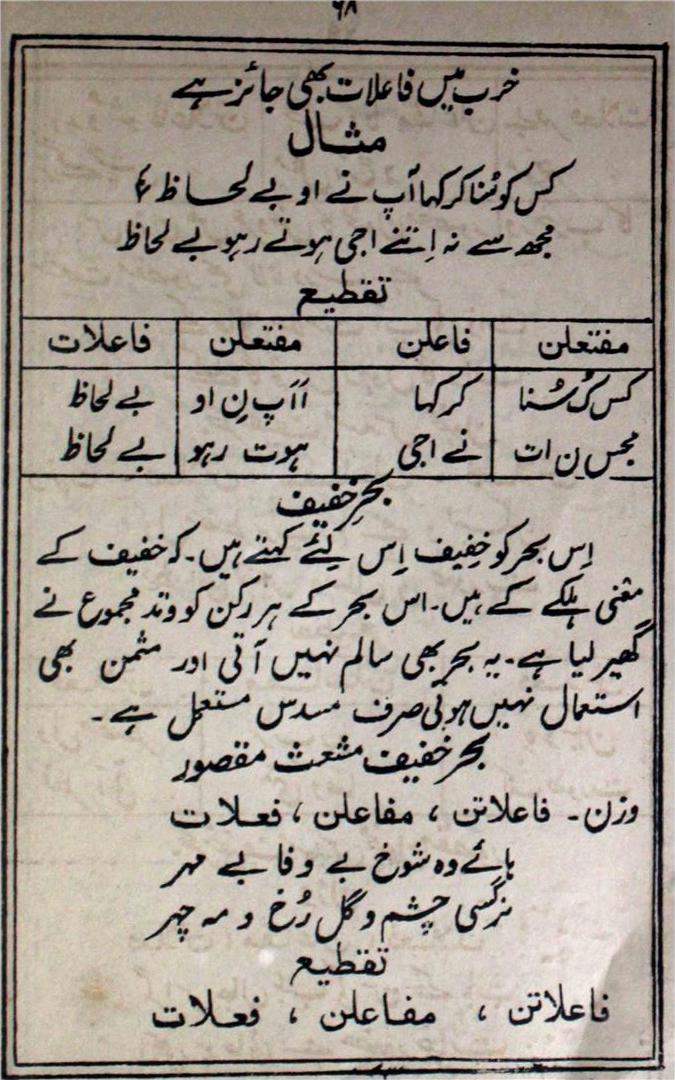 ۹۸
خرب میں فاعلات بھی جائز ہے
مثال
کس کو سُنا کر کہا آپ نے او بے لحاظ ؟
مجھ سے نہ اِتنے اجی ہوتے رہو بے لحاظ
تقطیع
مفتعلن فاعلن مفتعلن فاعلات
کس کُ سُنا کر کہا اَاَپ نِ او بے لحاظ
مجس ن ات نے اجی ہوت رہو بے لحاظ
بحرِ خفیف
اِس بحر کو خفِیف اِس لِئے کہتے ہیں۔ کہ خفیف کے
معنی ہلکے کے ہیں۔ اس بحر کے ہر رکن کو وتد مجموع نے
گھیر لیا ہے۔ یہ بحر بھی سالم نہیں آتی اور مثمن بھی
استعمال نہیں ہوتی صرف مسدس مستعمل ہے۔
بحر خفیف مشعث مقصور
وزن۔ فاعلاتن ، مفاعلن ، فعلات
ہائے وہ شوخ بے وفا بے مہر
نرگسی چشم و گل رُخ و مہ چہر
تقطیع
فاعلاتن ، مفاعلن ، فعلات